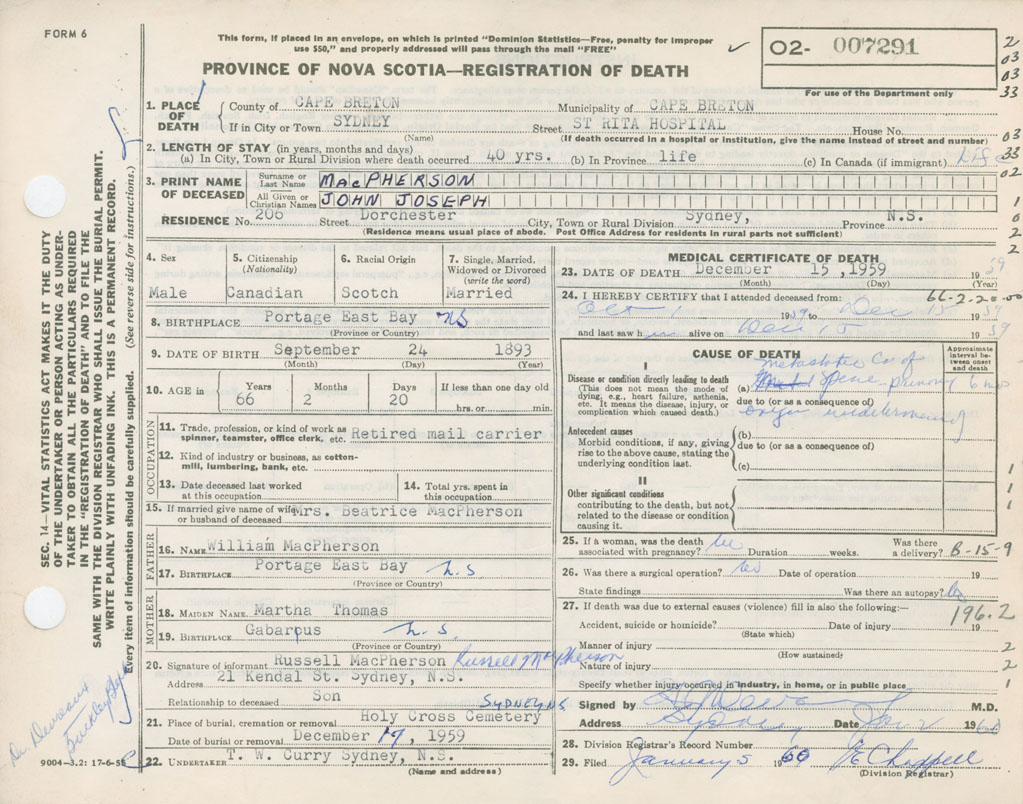 FORM 6
This form, if placed in an envelope, on which is printed "Dominion Statistics—Free, penalty for improper
use $50," and properly addressed will pass through the mail "FREE"
PROVINCE OF NOVA SCOTIA—REGISTRATION OF DEATH
O2- 007291
For use of the Department only
2
03
03
33
03
33
02
1
6
2
2
SEC. 14—VITAL STATISTICS ACT MAKES IT THE DUTY
OF THE UNDERTAKER OR PERSON ACTING AS UNDER-
TAKER TO OBTAIN ALL THE PARTICULARS REQUIRED
IN THE "REGISTRATION OF DEATH" AND TO FILE THE
SAME WITH THE DIVISION REGISTRAR WHO SHALL ISSUE THE BURIAL PERMIT.
WRITE PLAINLY WITH UNFADING INK. THIS IS A PERMANENT RECORD.
Every item of information should be carefully supplied. (See reverse side for instructions.)
1. PLACE OF DEATH
County of CAPE BRETON Municipality of CAPE BRETON
If in City or Town SYDNEY Street ST RITA HOSPITAL House No.
(Name) (If death occurred in a hospital or institution, give the name instead of street and number)
2. LENGTH OF STAY (in years, months and days)
(a) In City, Town or Rural Division where death occurred 40 yrs. (b) In Province life (c) In Canada (if immigrant) Life
3. PRINT NAME OF DECEASED
Surname or Last Name MACPHERSON
All Given or Christian Names JOHN JOSEPH
RESIDENCE No. 206 Street Dorchester City, Town or Rural Division Sydney, Province N.S.
(Residence means usual place of abode. Post Office Address for residents in rural parts not sufficient)
4. Sex
Male
5. Citizenship (Nationality)
Canadian
6. Racial Origin
Scotch
7. Single, Married, Widowed or Divorced (write the word)
Married
8. BIRTHPLACE Portage East Bay NS
(Province or Country)
9. DATE OF BIRTH September 24 1893
(Month) (Day) (Year)
10. AGE in Years Months Days If less than one day old
66 2 20 hrs. or min.
OCCUPATION
11. Trade, profession, or kind of work as spinner, teamster, office clerk, etc. Retired mail carrier
12. Kind of industry or business, as cotton-mill, lumbering, bank, etc.
13. Date deceased last worked at this occupation
14. Total yrs. spent in this occupation
15. If married give name of wife or husband of deceased Mrs. Beatrice MacPherson
FATHER
16. NAME William MacPherson
17. BIRTHPLACE Portage East Bay N.S
(Province or Country)
MOTHER
18. MAIDEN NAME Martha Thomas
19. BIRTHPLACE Gabarpus N.S.
(Province or Country)
20. Signature of informant Russell MacPherson Russell MacPherson
Address 21 Kendal St. Sydney, N.S.
Relationship to deceased Son
SYDNEY NS
21. Place of burial, cremation or removal Holy Cross Cemetery
Date of burial or removal December 17, 1959
22. UNDERTAKER T. W. Curry Sydney, N.S.
(Name and address)
9004-3.2: 17-6-58
MEDICAL CERTIFICATE OF DEATH
23. DATE OF DEATH December 15, 1959 19 59
(Month) (Day) (Year)
24. I HEREBY CERTIFY that I attended deceased from: 66-2-20-00
Oct 1 1959 to Dec 15 1959
and last saw him alive on Dec 15 1959
CAUSE OF DEATH
Approximate interval between onset and death
I
Disease or condition directly leading to death
(This does not mean the mode of dying, e.g., heart failure, asthenia, etc. It means the disease, injury, or complication which caused death.)
(a) Metastatic Ca of Spine, primary 6 mos
due to (or as a consequence of)
Antecedent causes
Morbid conditions, if any, giving rise to the above cause, stating the underlying condition last.
(b)
due to (or as a consequence of)
(c)
II
Other significant conditions
contributing to the death, but not related to the disease or condition causing it.
1
1
1
25. If a woman, was the death associated with pregnancy? Duration weeks. Was there a delivery?
B-15-9
26. Was there a surgical operation? Date of operation 19
State findings Was there an autopsy?
27. If death was due to external causes (violence) fill in also the following:—
196.2
Accident, suicide or homicide? Date of injury 19
(State which)
Manner of injury 2
(How sustained)
Nature of injury 2
Specify whether injury occurred in industry, in home, or in public place 1
Signed by M.D.
Address Sydney Date Jan 2 1960
28. Division Registrar's Record Number
29. Filed January 5 1960
(Division Registrar)